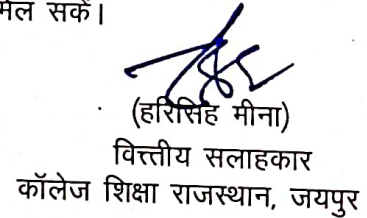 मिल सकें।
(हरिसिंह मीना)
वित्तीय सलाहकार
कॉलेज शिक्षा राजस्थान, जयपुर